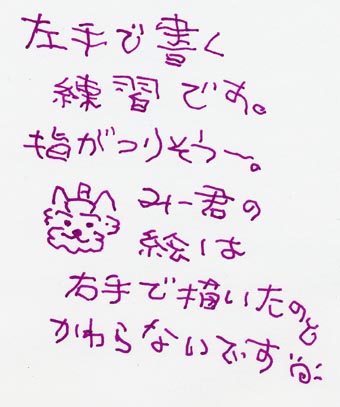 左手で書く
練習です。
指がつりそう〜。
みー君の
絵は
右手で描いたのと
かわらないです